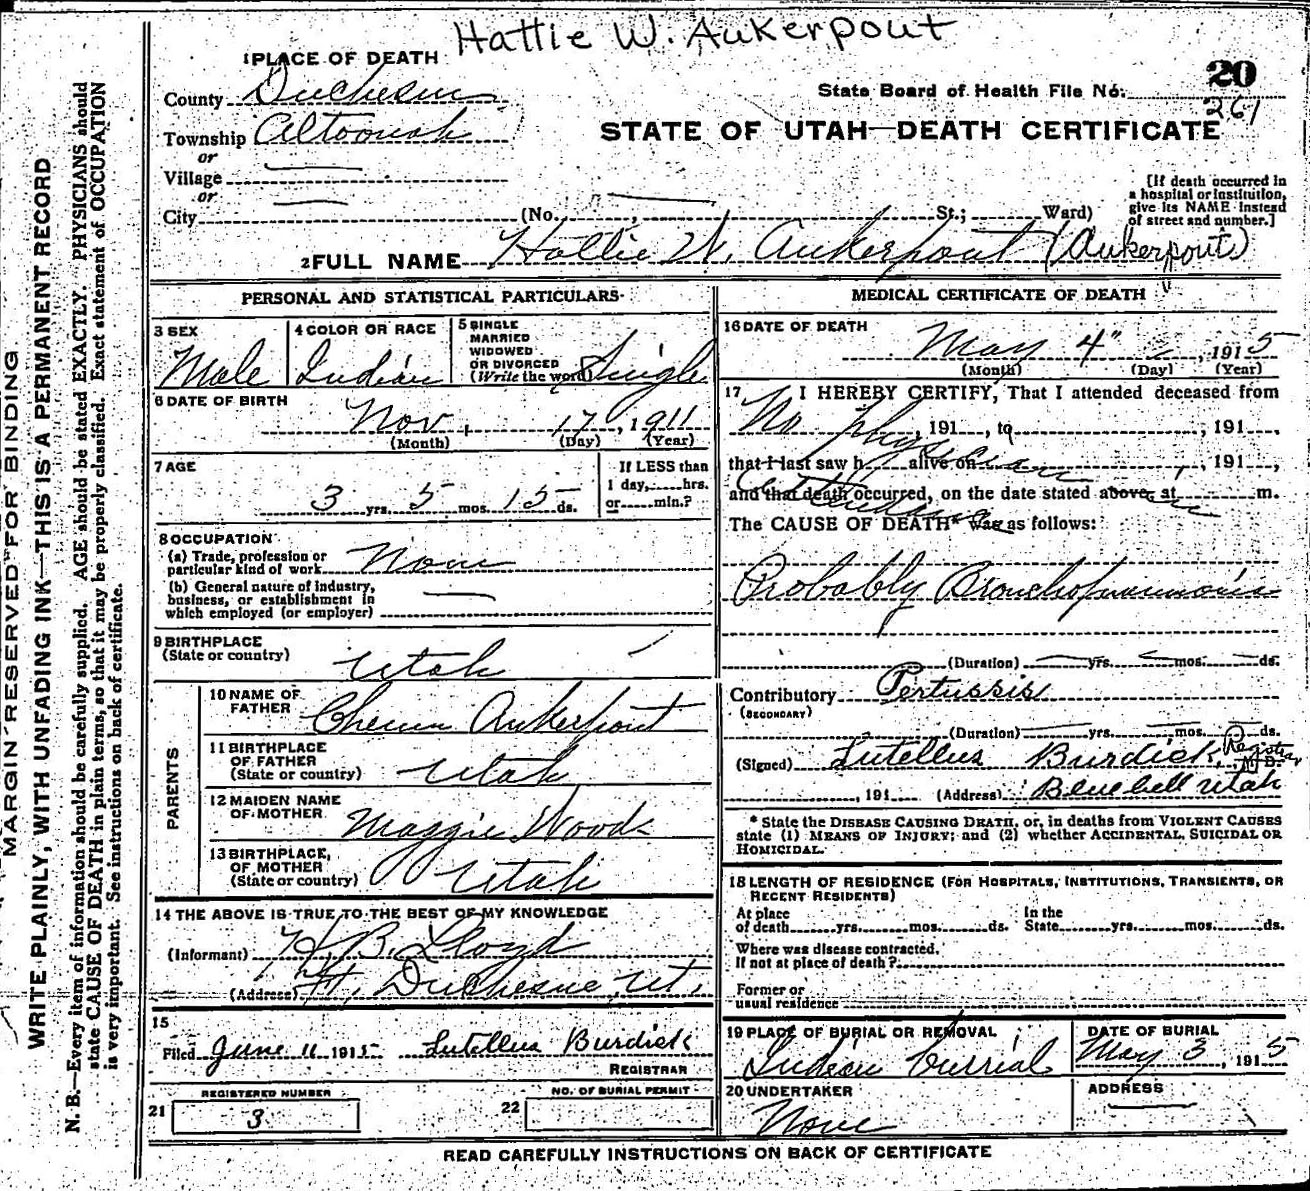 Hattie W. Aukerpout
1 PLACE OF DEATH
20
County Duchesne
State Board of Health File No. 261
Township Altoonah
STATE OF UTAH—DEATH CERTIFICATE
or
Village
or
City (No. , St.; Ward)
[If death occurred in
a hospital or institution,
give its NAME instead
of street and number.]
2 FULL NAME Hattie W. Aukerpout (Aukerpout)
MARGIN RESERVED FOR BINDING
WRITE PLAINLY, WITH UNFADING INK—THIS IS A PERMANENT RECORD
N. B.—Every item of information should be carefully supplied. AGE should be stated EXACTLY. PHYSICIANS should
state CAUSE OF DEATH in plain terms, so that it may be properly classified. Exact statement of OCCUPATION
is very important. See instructions on back of certificate.
PERSONAL AND STATISTICAL PARTICULARS
3 SEX
Male
4 COLOR OR RACE
Indian
5 SINGLE
MARRIED
WIDOWED
OR DIVORCED
(Write the word) Single
6 DATE OF BIRTH
Nov. 17, 1911
(Month) (Day) (Year)
7 AGE
3 yrs. 5 mos. 15 ds.
If LESS than
1 day, hrs.
or min.?
8 OCCUPATION
(a) Trade, profession or
particular kind of work None
(b) General nature of industry,
business, or establishment in
which employed (or employer)
9 BIRTHPLACE
(State or country)
Utah
PARENTS
10 NAME OF
FATHER Aukerpout
11 BIRTHPLACE
OF FATHER
(State or country) Utah
12 MAIDEN NAME
OF MOTHER Maggie Wood
13 BIRTHPLACE,
OF MOTHER
(State or country) Utah
14 THE ABOVE IS TRUE TO THE BEST OF MY KNOWLEDGE
(Informant) H. B. Lloyd
(Address) Ft. Duchesne, Ut.
15
Filed June 11 1915 Lutellus Burdick
REGISTRAR
REGISTERED NUMBER
21 3
NO. OF BURIAL PERMIT
22
MEDICAL CERTIFICATE OF DEATH
16 DATE OF DEATH
May 4", 1915
(Month) (Day) (Year)
17 I HEREBY CERTIFY, That I attended deceased from
No physician
, 191 , to , 191 ,
that I last saw h alive on , 191 ,
and that death occurred, on the date stated above, at m.
The CAUSE OF DEATH* was as follows:
Probably Bronchopneumonia
(Duration) yrs. mos. ds.
Contributory Pertussis
(SECONDARY)
(Duration) yrs. mos. ds.
(Signed) Lutellus Burdick, Registrar M. D.
, 191 (Address) Bluebell Utah
* State the DISEASE CAUSING DEATH, or, in deaths from VIOLENT CAUSES
state (1) MEANS OF INJURY; and (2) whether ACCIDENTAL, SUICIDAL OR
HOMICIDAL.
18 LENGTH OF RESIDENCE (FOR HOSPITALS, INSTITUTIONS, TRANSIENTS, OR
RECENT RESIDENTS)
At place
of death yrs. mos. ds.
In the
State yrs. mos. ds.
Where was disease contracted.
If not at place of death?
Former or
usual residence
19 PLACE OF BURIAL OR REMOVAL
Indian burrial
DATE OF BURIAL
May 3, 1915
20 UNDERTAKER
None
ADDRESS
READ CAREFULLY INSTRUCTIONS ON BACK OF CERTIFICATE